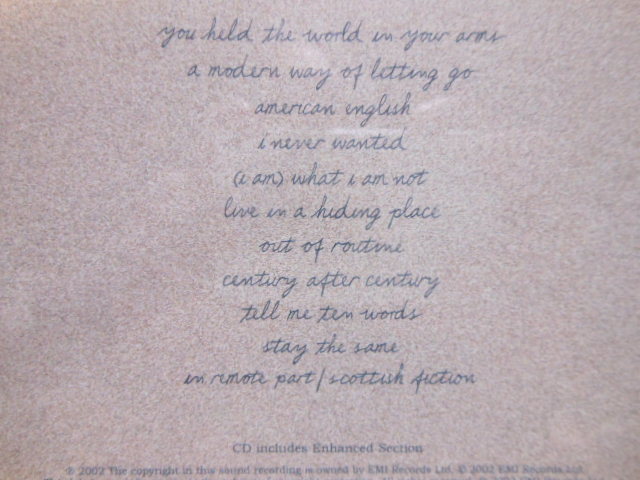 you held the world in your arms
a modern way of letting go
american english
i never wanted
(i am) what i am not
live in a hiding place
out of routine
century after century
tell me ten words
stay the same
in remote part / scottish fiction
CD includes Enhanced Section
℗ 2002 The copyright in this sound recording is owned by EMI Records Ltd. © 2002 EMI Records Ltd.